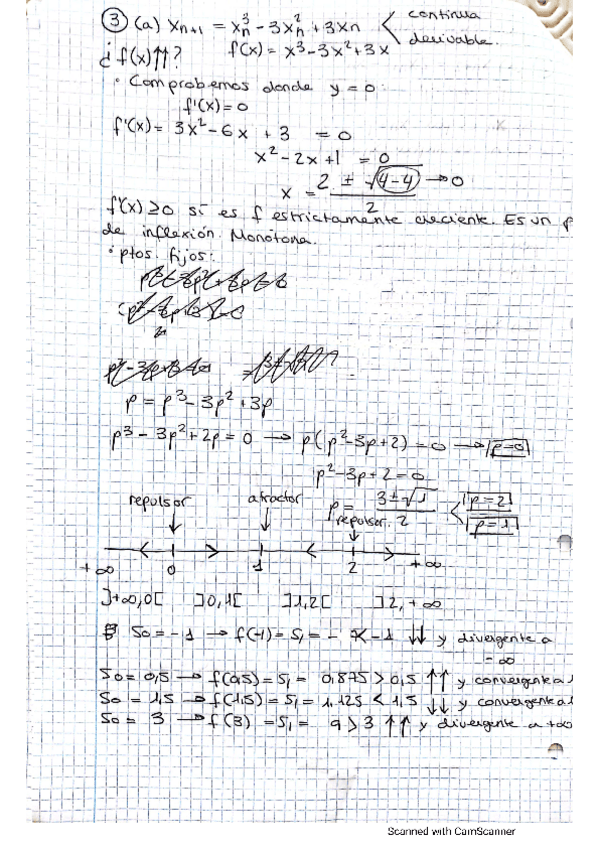 ③ (a) Xn+1 = Xn³ - 3Xn² + 3Xn < continua
derivable.
¿f(x)↑↑? f(x) = x³-3x²+3x
· Comprobemos donde y = 0:
f'(x)=0
f'(x)= 3x²-6x + 3 = 0
x²-2x+1 = 0
x = 2 ± √(4-4) → 0
2
f'(x) ≥0 sí es f estrictamente creciente. Es un p
de inflexión. Monótona.
· ptos. fijos:
p = p³-3p²+3p
p³-3p²+2p=0 → p(p²-3p+2)=0 → p=0
p²-3p+2=0
repulsor atractor p= 3±√1 < p=2
repulsor. 2 p=1
+∞ 0 1 2 +∞
]+∞,0[ ]0,1[ ]1,2[ ]2,+∞
So=-1 → f(-1)=S1= - -1 ↓↓ y divergente a
-∞
So= 0,5 → f(0,5)=S1= 0,875 > 0,5 ↑↑ y convergente a 1
So= 1,5 → f(1,5)=S1= 1,125 < 1,5 ↓↓ y convergente a 1
So= 3 → f(3) =S1= 9 > 3 ↑↑ y divergente a +∞
Scanned with CamScanner